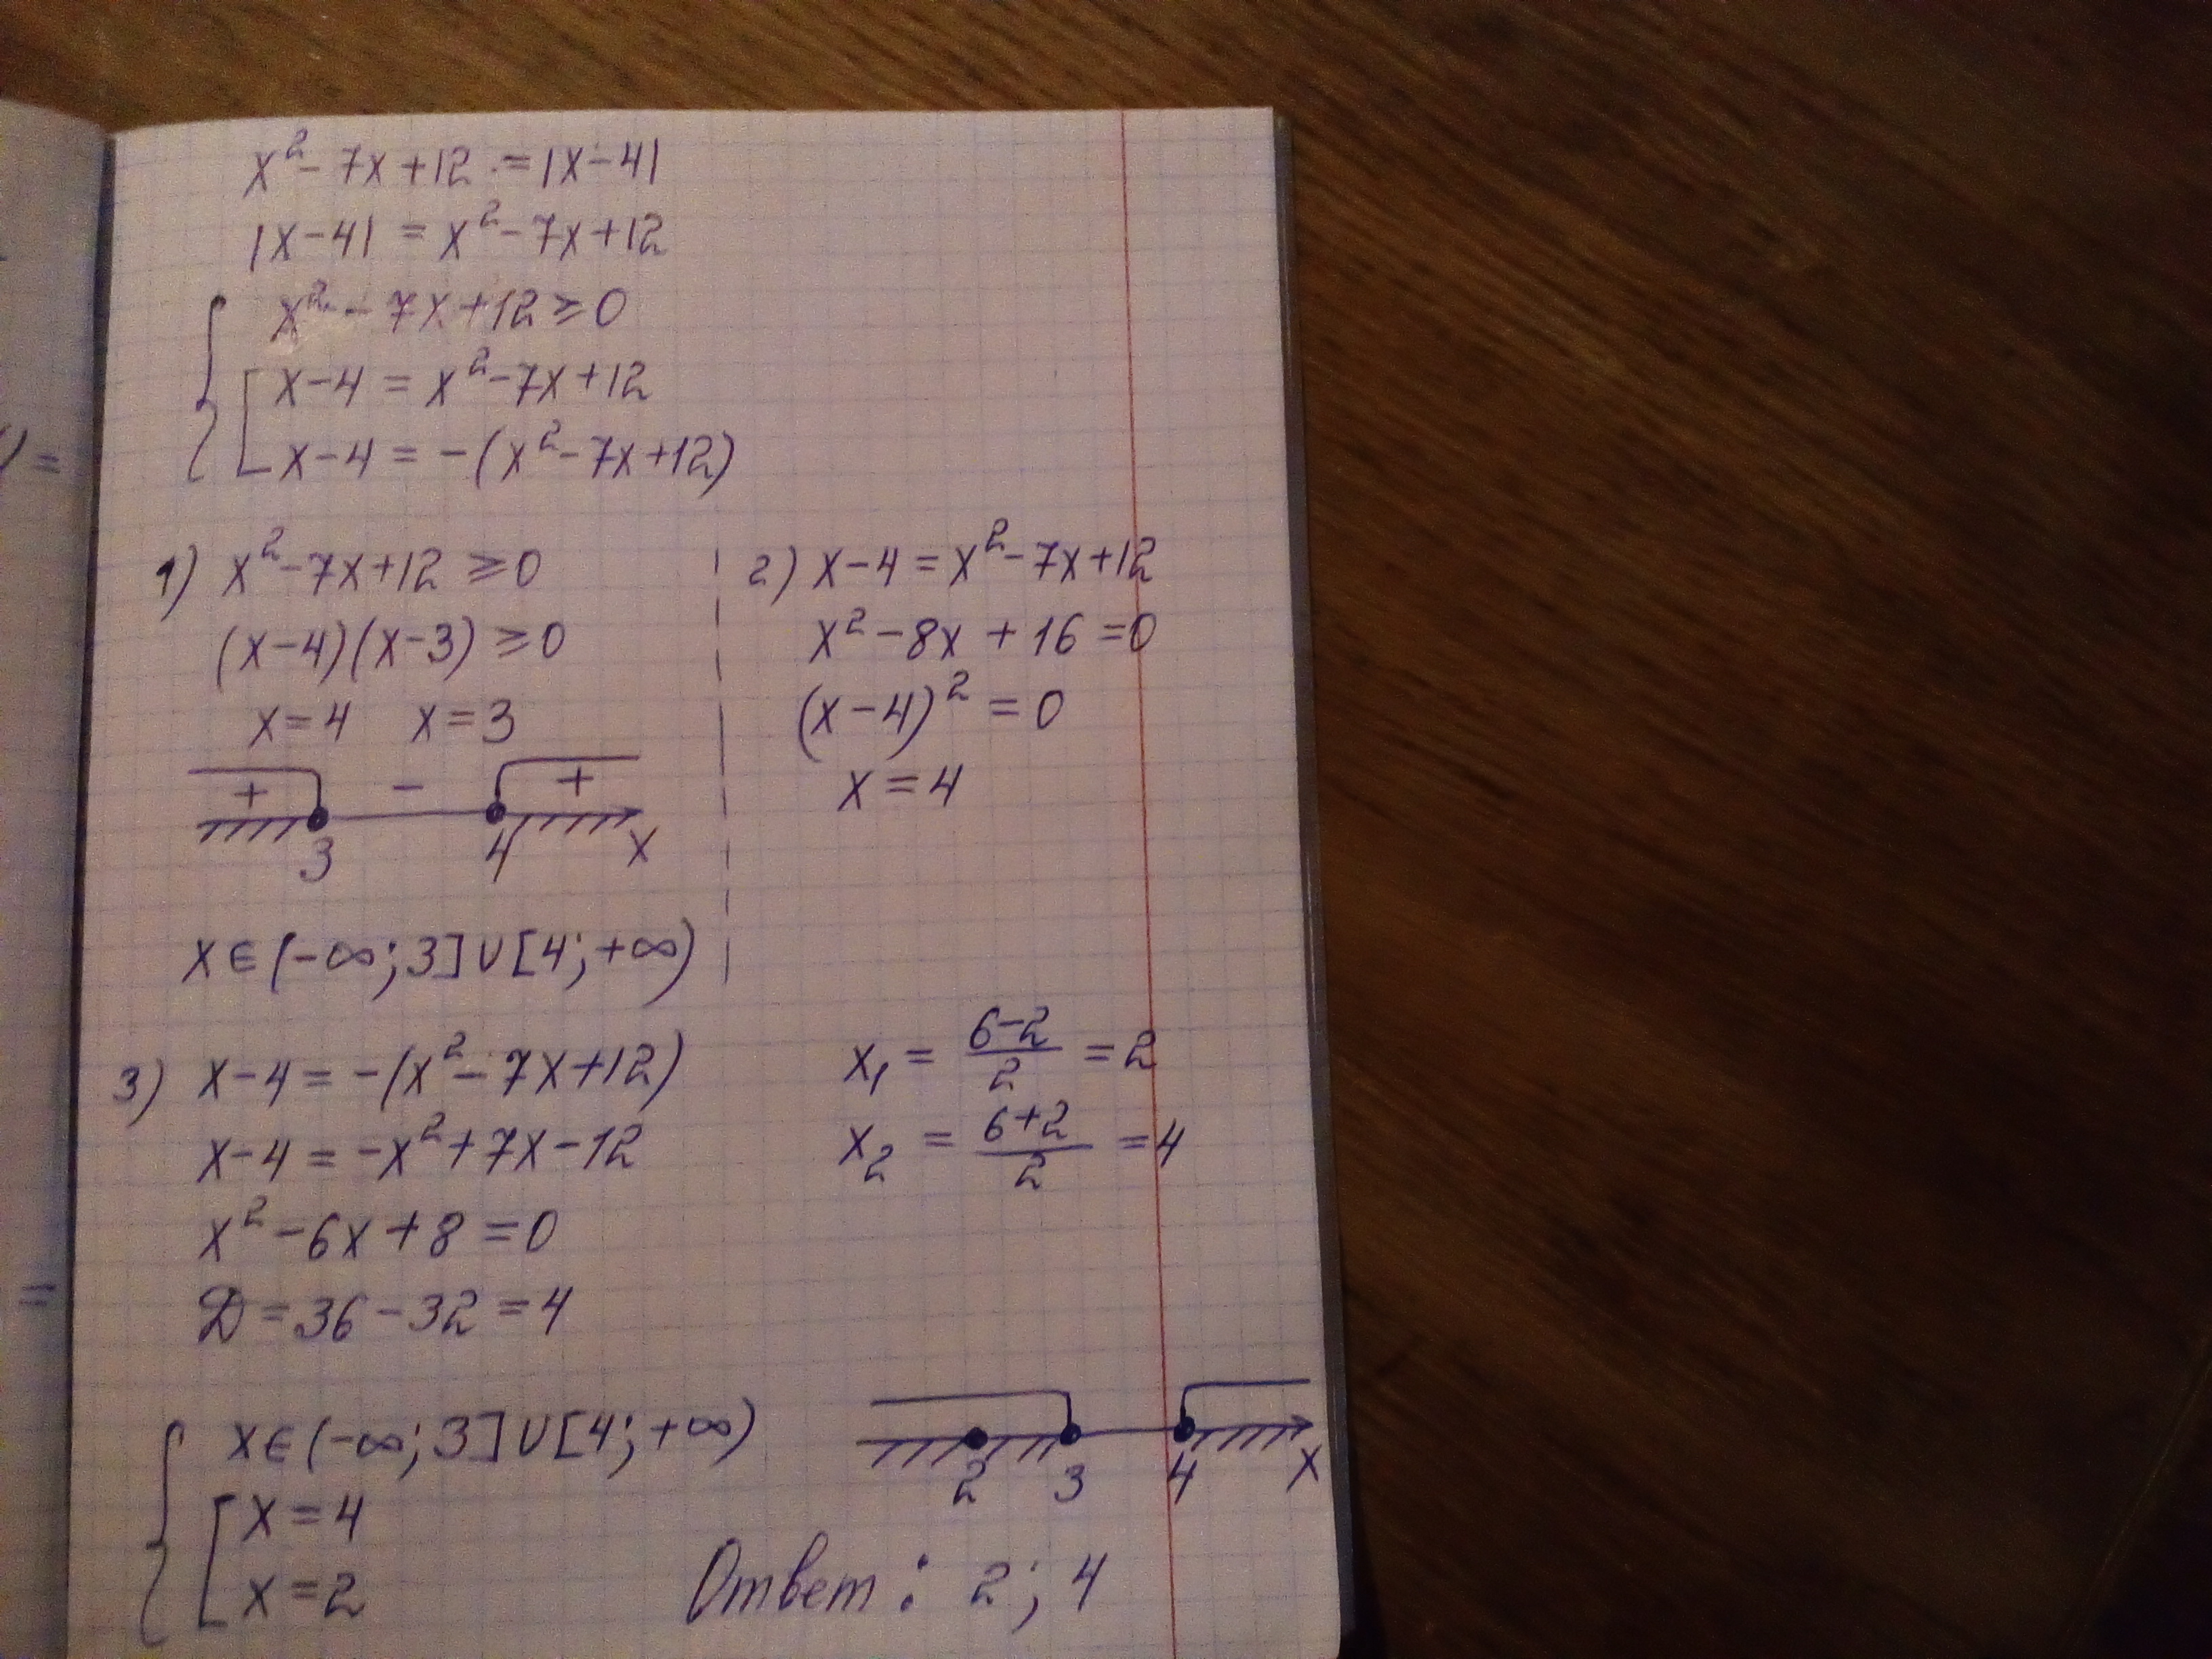 x² - 7x + 12 = |x - 4|
|x - 4| = x² - 7x + 12
{ x² - 7x + 12 ≥ 0
[ x - 4 = x² - 7x + 12
x - 4 = -(x² - 7x + 12)
1) x² - 7x + 12 ≥ 0
(x - 4)(x - 3) ≥ 0
x = 4 x = 3
+ - +
3 4 x
x ∈ (-∞; 3] ∪ [4; +∞)
2) x - 4 = x² - 7x + 12
x² - 8x + 16 = 0
(x - 4)² = 0
x = 4
3) x - 4 = -(x² - 7x + 12)
x - 4 = -x² + 7x - 12
x² - 6x + 8 = 0
D = 36 - 32 = 4
x₁ = (6 - 2)/2 = 2
x₂ = (6 + 2)/2 = 4
{ x ∈ (-∞; 3] ∪ [4; +∞)
[ x = 4
x = 2
2 3 4 x
Ответ: 2; 4
) =
=